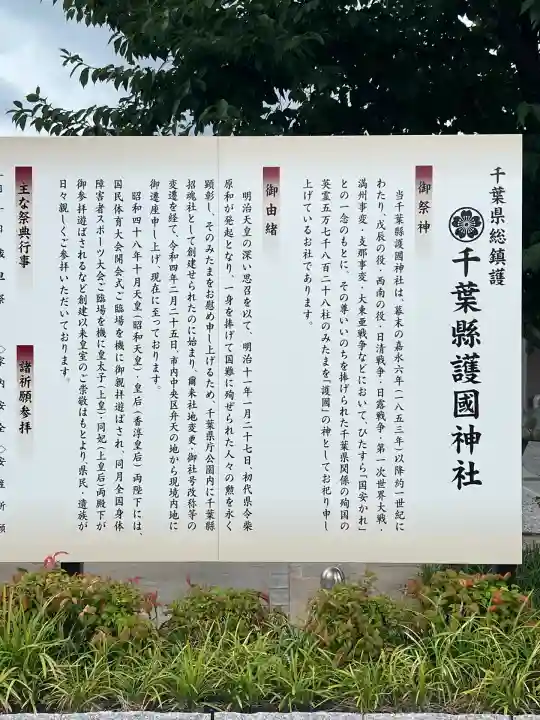 千葉県総鎮護
千葉縣護國神社
御祭神
当千葉縣護國神社は、幕末の嘉永六年(一八五三年)以降約一世紀に
わたり、戊辰の役・西南の役・日清戦争・日露戦争・第一次世界大戦・
満州事変・支那事変・大東亜戦争などにおいて、ひたすら「国安かれ」
との一念のもとに、その尊いいのちを捧げられた千葉県関係の殉国の
英霊五万七千八百二十八柱のみたまを「護國」の神としてお祀り申し
上げているお社であります。
御由緒
明治天皇の深い思召を以て、明治十一年一月二十七日、初代県令柴
原和が発起となり、一身を捧げて国難に殉ぜられた人々の勲を永く
顕彰し、そのみたまをお慰め申し上げるため、千葉県庁公園内に千葉縣
招魂社として創建せられたのに始まり、爾来社地変更・御社号改称等の
変遷を経て、令和四年二月二十五日、市内中央区弁天の地から現境内地に
御遷座申し上げ、現在に至っております。
昭和四十八年十月天皇(昭和天皇)・皇后(香淳皇后)両陛下には、
国民体育大会開会式ご臨場を機に御親拝遊ばされ、同月全国身体
障害者スポーツ大会ご臨場を機に皇太子(上皇)・同妃(上皇后)両殿下が
御参拝遊ばされるなど創建以来皇室のご崇敬はもとより県民・遺族が
日々親しくご参拝いただいております。
主な祭典行事
諸祈願参拝
一月一日 歳旦祭
◇家内安全 ◇安産祈願